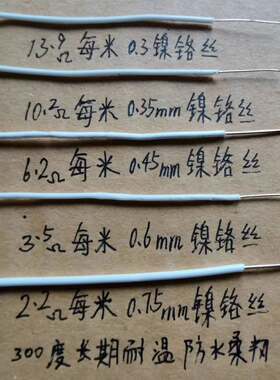 13.9Ω每米 0.3镍铬丝
10.2Ω每米 0.35mm镍铬丝
6.2Ω每米 0.45mm镍铬丝
3.5Ω每米 0.6mm镍铬丝
2.2Ω每米 0.75mm镍铬丝
300度长期耐温 防水柔韧